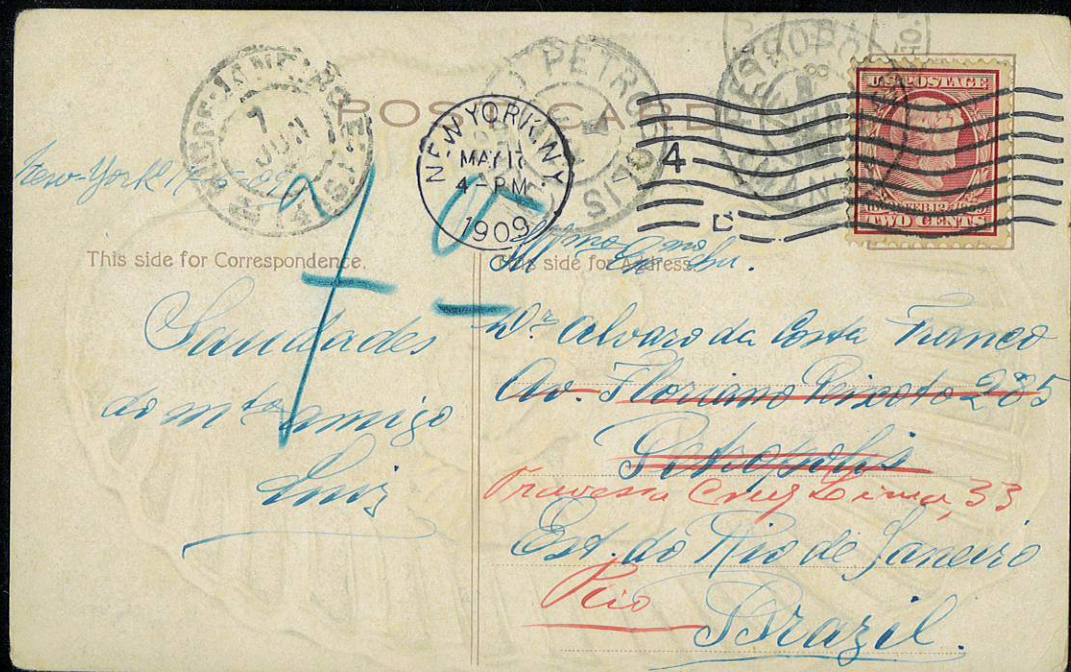 POST CARD
NEW YORK, N.Y.
MAY 17
4-PM
1909
4
D
PETROPOLIS
7
JUN
U.S. POSTAGE
TWO CENTS
New-York 17
This side for Correspondence.
This side for Address.
Saudades
do mto amigo
Luiz
Illmo Exmo Snr.
Dr. Alvaro da Costa Franco
Av. Floriano Peixoto 285
Petropolis
Travessa Cruz Lima, 33
Est. do Rio de Janeiro
Rio
Brazil.